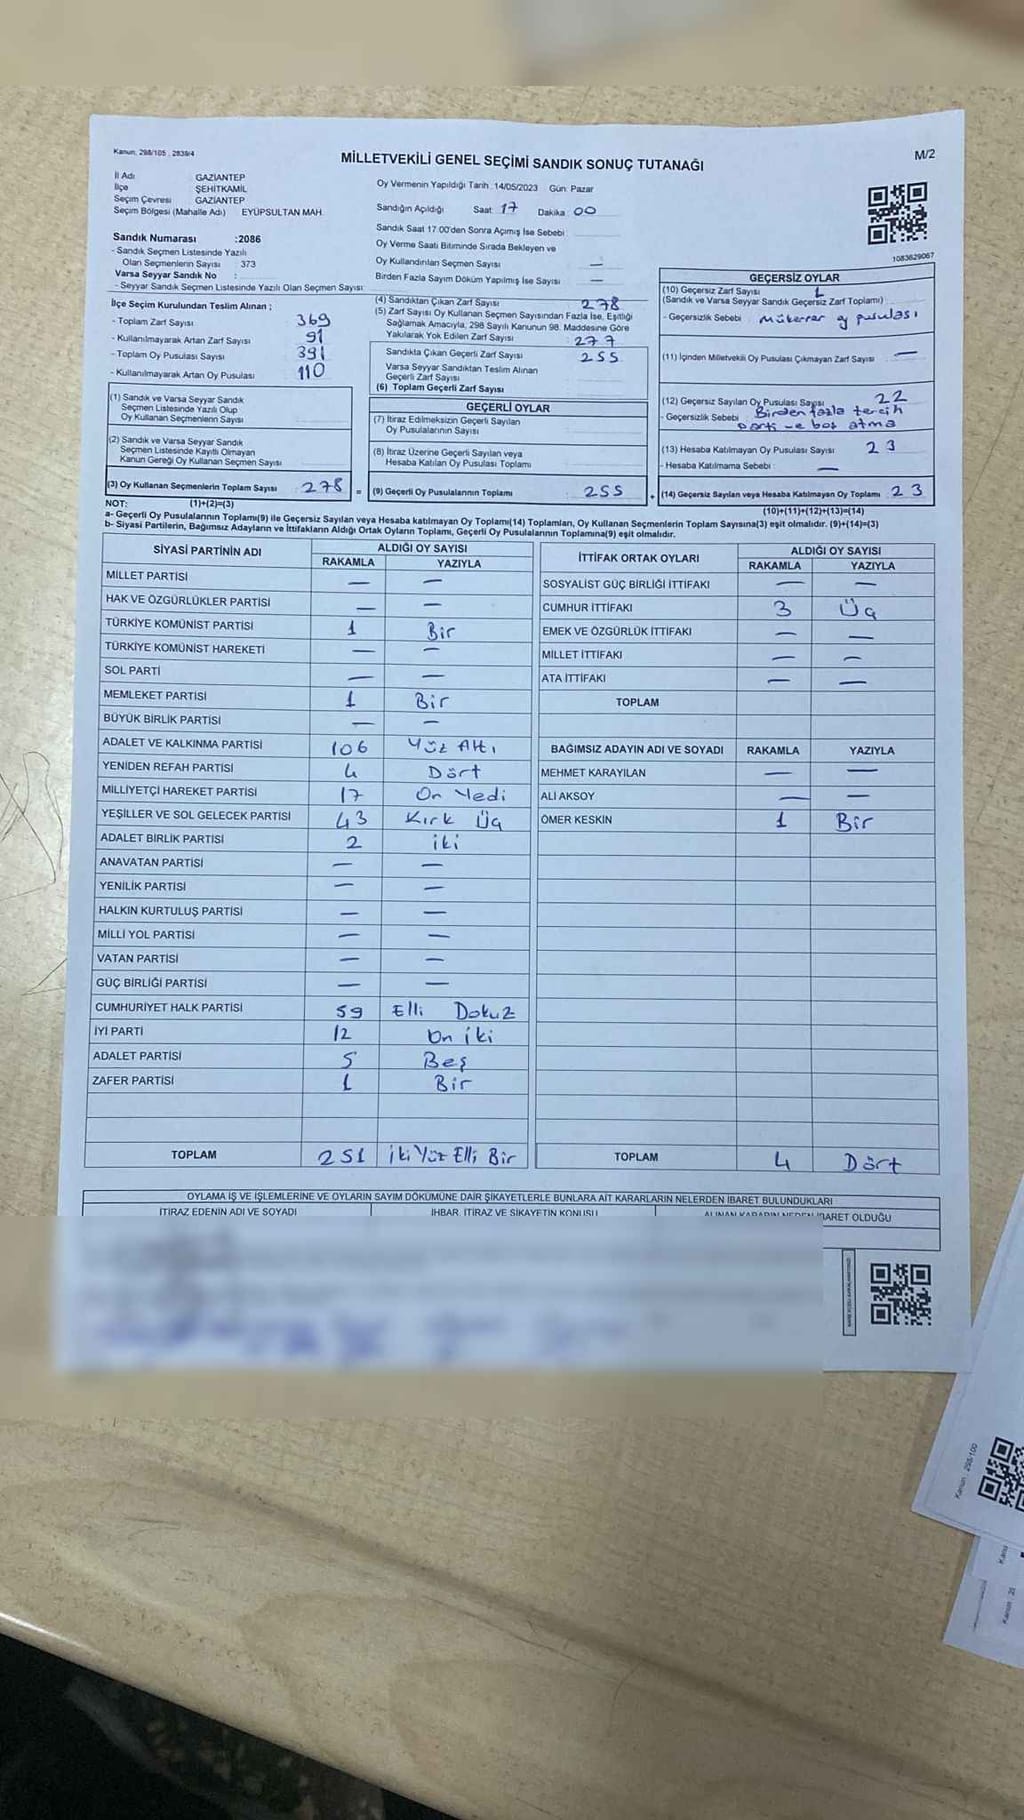 Kanun, 298/105 , 2839/4
MİLLETVEKİLİ GENEL SEÇİMİ SANDIK SONUÇ TUTANAĞI
M/2
İl Adı GAZİANTEP
İlçe ŞEHİTKAMİL
Seçim Çevresi GAZİANTEP
Seçim Bölgesi (Mahalle Adı) EYÜPSULTAN MAH.
Sandık Numarası :2086
- Sandık Seçmen Listesinde Yazılı
Olan Seçmenlerin Sayısı : 373
Varsa Seyyar Sandık No :
- Seyyar Sandık Seçmen Listesinde Yazılı Olan Seçmen Sayısı:
Oy Vermenin Yapıldığı Tarih :14/05/2023 Gün: Pazar
Sandığın Açıldığı Saat: 17 Dakika 00
Sandık Saat 17.00'den Sonra Açımış İse Sebebi :
Oy Verme Saati Bitiminde Sırada Bekleyen ve
Oy Kullandırılan Seçmen Sayısı —
Birden Fazla Sayım Döküm Yapılmış İse Sayısı : —
1083629067
İlçe Seçim Kurulundan Teslim Alınan ;
- Toplam Zarf Sayısı 369
- Kullanılmayarak Artan Zarf Sayısı 91
- Toplam Oy Pusulası Sayısı 391
- Kullanılmayarak Artan Oy Pusulası 110
(1) Sandık ve Varsa Seyyar Sandık
Seçmen Listesinde Yazılı Olup
Oy Kullanan Seçmenlerin Sayısı
(2) Sandık ve Varsa Seyyar Sandık
Seçmen Listesinde Kayıtlı Olmayan
Kanun Gereği Oy Kullanan Seçmen Sayısı
(3) Oy Kullanan Seçmenlerin Toplam Sayısı 278 =
(1)+(2)=(3)
(4) Sandıktan Çıkan Zarf Sayısı 278
(5) Zarf Sayısı Oy Kullanan Seçmen Sayısından Fazla İse, Eşitliği
Sağlamak Amacıyla, 298 Sayılı Kanunun 98. Maddesine Göre
Yakılarak Yok Edilen Zarf Sayısı : 277
Sandıkta Çıkan Geçerli Zarf Sayısı 255
Varsa Seyyar Sandıktan Teslim Alınan
Geçerli Zarf Sayısı
(6) Toplam Geçerli Zarf Sayısı
GEÇERLİ OYLAR
(7) İtiraz Edilmeksizin Geçerli Sayılan
Oy Pusulalarının Sayısı
(8) İtiraz Üzerine Geçerli Sayılan veya
Hesaba Katılan Oy Pusulası Toplamı
(9) Geçerli Oy Pusulalarının Toplamı 255 +
GEÇERSİZ OYLAR
(10) Geçersiz Zarf Sayısı 1
(Sandık ve Varsa Seyyar Sandık Geçersiz Zarf Toplamı)
- Geçersizlik Sebebi : Mükerrer oy pusulası
(11) İçinden Milletvekili Oy Pusulası Çıkmayan Zarf Sayısı —
(12) Geçersiz Sayılan Oy Pusulası Sayısı 22
- Geçersizlik Sebebi : Birden fazla tercih
atma
(13) Hesaba Katılmayan Oy Pusulası Sayısı 23
- Hesaba Katılmama Sebebi : —
(14) Geçersiz Sayılan veya Hesaba Katılmayan Oy Toplamı 23
(10)+(11)+(12)+(13)=(14)
NOT:
a- Geçerli Oy Pusulalarının Toplamı(9) ile Geçersiz Sayılan veya Hesaba katılmayan Oy Toplamı(14) Toplamları, Oy Kullanan Seçmenlerin Toplam Sayısına(3) eşit olmalıdır. (9)+(14)=(3)
b- Siyasi Partilerin, Bağımsız Adayların ve İttifakların Aldığı Ortak Oyların Toplamı, Geçerli Oy Pusulalarının Toplamına(9) eşit olmalıdır.
SİYASİ PARTİNİN ADI ALDIĞI OY SAYISI
RAKAMLA YAZIYLA
MİLLET PARTİSİ — —
HAK VE ÖZGÜRLÜKLER PARTİSİ — —
TÜRKİYE KOMÜNİST PARTİSİ 1 Bir
TÜRKİYE KOMÜNİST HAREKETİ — —
SOL PARTİ — —
MEMLEKET PARTİSİ 1 Bir
BÜYÜK BİRLİK PARTİSİ — —
ADALET VE KALKINMA PARTİSİ 106 Yüz Altı
YENİDEN REFAH PARTİSİ 4 Dört
MİLLİYETÇİ HAREKET PARTİSİ 17 On Yedi
YEŞİLLER VE SOL GELECEK PARTİSİ 43 Kırk Üç
ADALET BİRLİK PARTİSİ 2 iki
ANAVATAN PARTİSİ — —
YENİLİK PARTİSİ — —
HALKIN KURTULUŞ PARTİSİ — —
MİLLİ YOL PARTİSİ — —
VATAN PARTİSİ — —
GÜÇ BİRLİĞİ PARTİSİ — —
CUMHURİYET HALK PARTİSİ 59 Elli Dokuz
İYİ PARTİ 12 On iki
ADALET PARTİSİ 5 Beş
ZAFER PARTİSİ 1 Bir
TOPLAM 251 iki Yüz Elli Bir
İTTİFAK ORTAK OYLARI ALDIĞI OY SAYISI
RAKAMLA YAZIYLA
SOSYALİST GÜÇ BİRLİĞİ İTTİFAKI — —
CUMHUR İTTİFAKI 3 Üç
EMEK VE ÖZGÜRLÜK İTTİFAKI — —
MİLLET İTTİFAKI — —
ATA İTTİFAKI — —
TOPLAM
BAĞIMSIZ ADAYIN ADI VE SOYADI RAKAMLA YAZIYLA
MEHMET KARAYILAN — —
ALİ AKSOY — —
ÖMER KESKİN 1 Bir
TOPLAM 4 Dört
OYLAMA İŞ VE İŞLEMLERİNE VE OYLARIN SAYIM DÖKÜMÜNE DAİR ŞİKAYETLERLE BUNLARA AİT KARARLARIN NELERDEN İBARET BULUNDUKLARI
İTİRAZ EDENİN ADI VE SOYADI İHBAR, İTİRAZ VE ŞİKAYETİN KONUSU ALINAN KARARIN NEDEN İBARET OLDUĞU
Kanun : 298/100